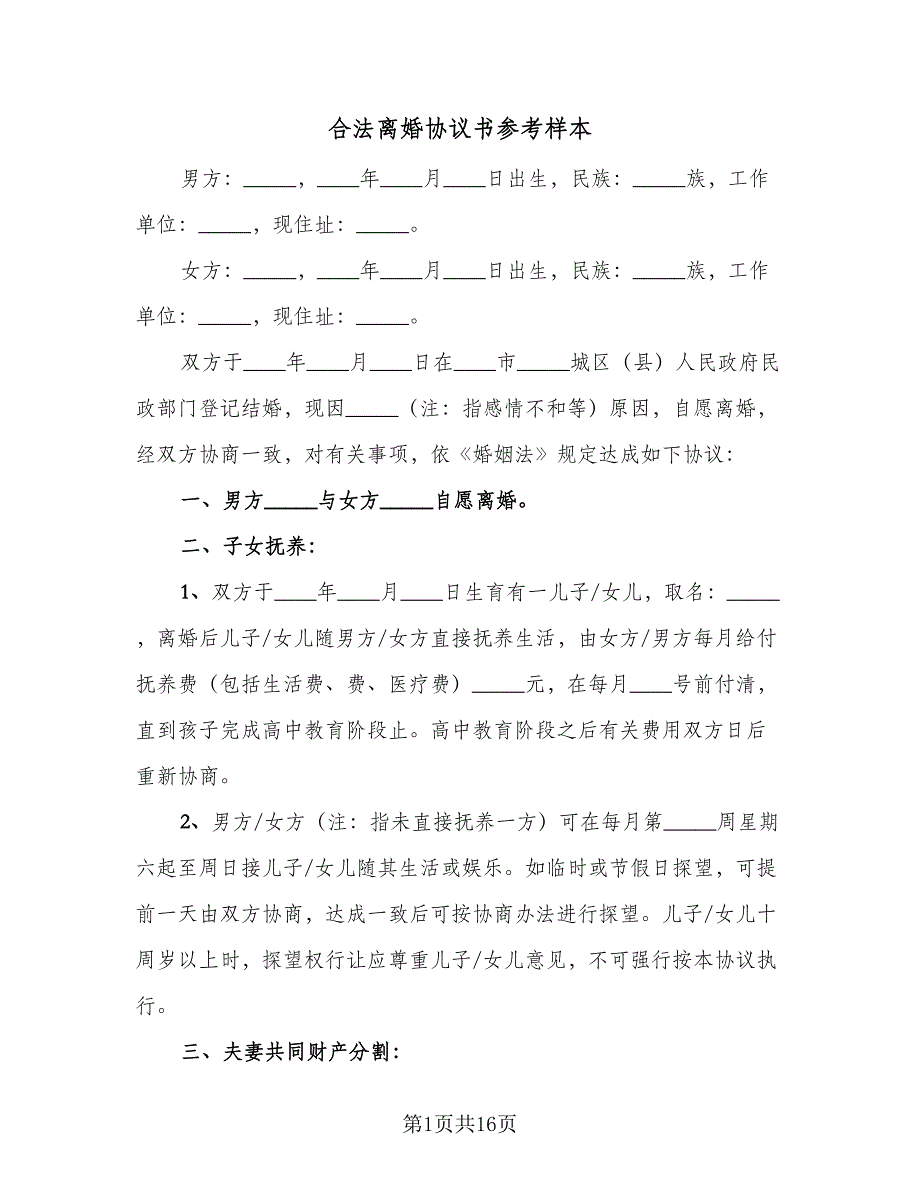 合法离婚协议书参考样本
男方：_____，____年____月____日出生，民族：_____族，工作
单位：_____，现住址：_____。
女方：_____，____年____月____日出生，民族：_____族，工作
单位：_____，现住址：_____。
双方于____年____月____日在____市_____城区（县）人民政府民
政部门登记结婚，现因_____（注：指感情不和等）原因，自愿离婚，
经双方协商一致，对有关事项，依《婚姻法》规定达成如下协议：
一、男方_____与女方_____自愿离婚。
二、子女抚养：
1、双方于____年____月____日生育有一儿子/女儿，取名：_____
，离婚后儿子/女儿随男方/女方直接抚养生活，由女方/男方每月给付
抚养费（包括生活费、费、医疗费）_____元，在每月____号前付清，
直到孩子完成高中教育阶段止。高中教育阶段之后有关费用双方日后
重新协商。
2、男方/女方（注：指未直接抚养一方）可在每月第_____周星期
六起至周日接儿子/女儿随其生活或娱乐。如临时或节假日探望，可提
前一天由双方协商，达成一致后可按协商办法进行探望。儿子/女儿十
周岁以上时，探望权行让应尊重儿子/女儿意见，不可强行按本协议执
行。
三、夫妻共同财产分割：
第1页共16页